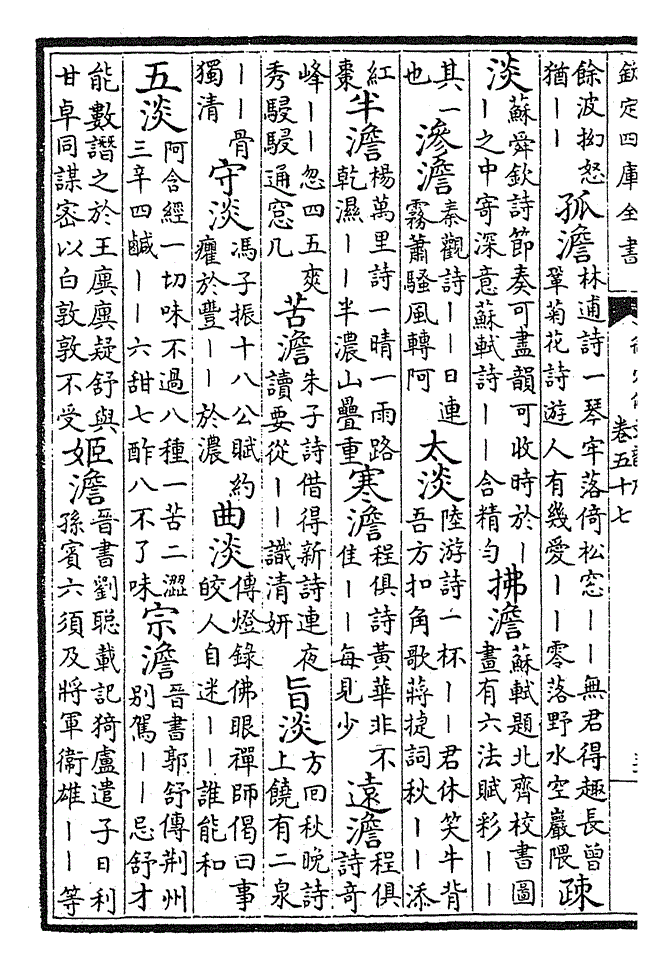 欽定四庫全書
卷五十七
餘波抝怒猶丨丨 孤澹 林逋詩一琴牢落倚松窓丨丨無君得趣長曾鞏菊花詩遊人有幾愛丨丨零落野水空巖隈 疎
淡 蘇舜欽詩節奏可盡韻可收時於丨丨之中寄深意蘇軾詩丨丨含精匀 拂澹 蘇軾題北齊校書圖畫有六法賦彩丨丨
其一也 滲澹 秦觀詩丨丨日連霧蕭騷風轉阿 太淡 陸游詩一杯丨丨君休笑牛背吾方扣角歌蔣捷詞秋丨丨添
紅棗 半澹 楊萬里詩一晴一雨路乾濕丨丨半濃山疊重 寒澹 程俱詩黃華非不佳丨丨每見少 遠澹 程俱詩奇
峰丨丨忽四五爽秀駸駸通窓几 苦澹 朱子詩借得新詩連夜讀要從丨丨識清妍 旨淡 方回秋晚詩上饒有二泉
丨丨骨獨清 守淡 馮子振十八公賦約癯於豐丨丨於濃 曲淡 傳燈錄佛眼禪師偈曰事皎人自迷丨丨誰能和
五淡 阿含經一切味不過八種一苦二澀三辛四鹹丨丨六甜七酢八不了味 宗澹 晉書郭舒傳荆州别駕丨丨忌舒才
能數譖之於王廙廙疑舒與甘卓同謀密以白敦敦不受 姬澹 晉書劉聰載記猗盧遣子日利孫賓六須及將軍衞雄丨丨等